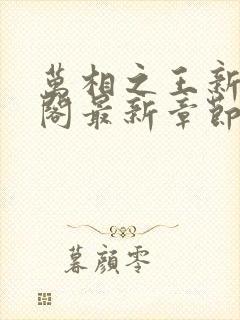 萬相之王新
閣最新章節
暮顏零